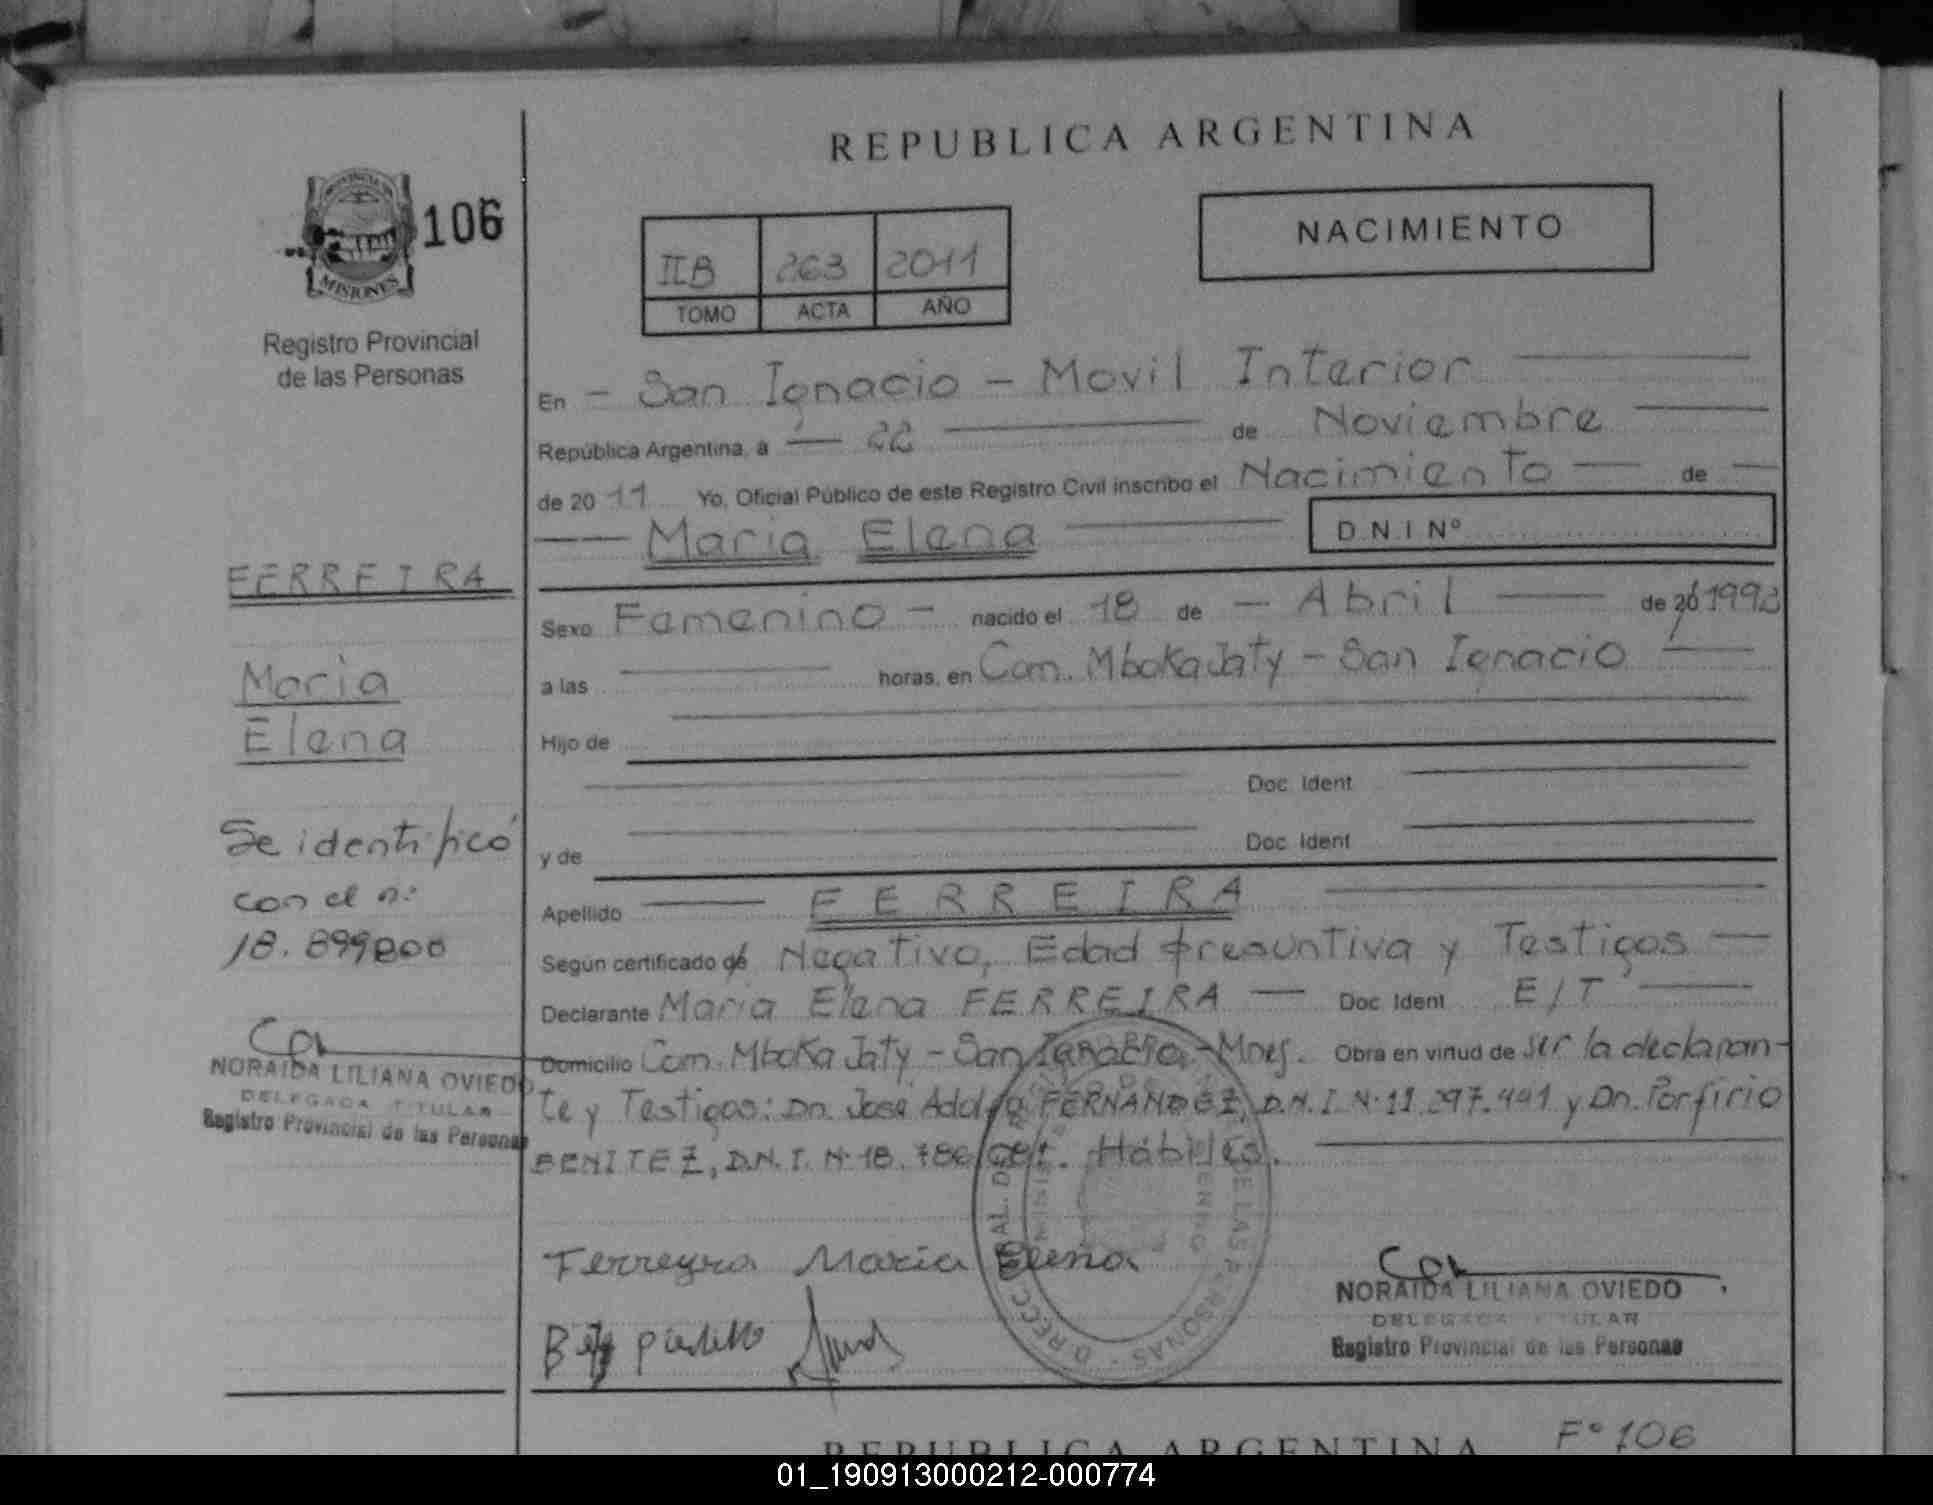 REPUBLICA ARGENTINA
PROVINCIA DE
MISIONES
106
NACIMIENTO
IIB 263 2011
TOMO ACTA AÑO
Registro Provincial
de las Personas
En - San Ignacio - Movil Interior
República Argentina, a 22 de Noviembre
de 2011 Yo, Oficial Público de este Registro Civil inscribo el Nacimiento de
Maria Elena D.N.I Nº
FERREIRA
Sexo Femenino - nacido el 18 de - Abril de 20 1993
Maria
a las horas, en Com. Mboka Jaty - San Ignacio
Elena
Hijo de
Doc. Ident
y de Doc. Ident
Se identificó
con el n:
18.899800
Apellido FERREIRA
Según certificado de Negativo, Edad presuntiva y Testigos
Declarante Maria Elena FERREIRA Doc. Ident E/T
Domicilio Com. Mboka Jaty - San Ignacio - Mnes. Obra en virtud de ser la declaran-
te y Testigos: Dn. José Adolfo FERNANDEZ, D.N.I. N· 11.297.491 y Dn. Porfirio
BENITEZ, D.N.I. N· 18. Hábiles.
NORAIDA LILIANA OVIEDO
DELEGADA TITULAR
Registro Provincial de las Personas
Ferreyra Maria Elena
NORAIDA LILIANA OVIEDO
DELEGADA TITULAR
Registro Provincial de las Personas
REPUBLICA ARGENTINA
Fº 106
01_190913000212-000774